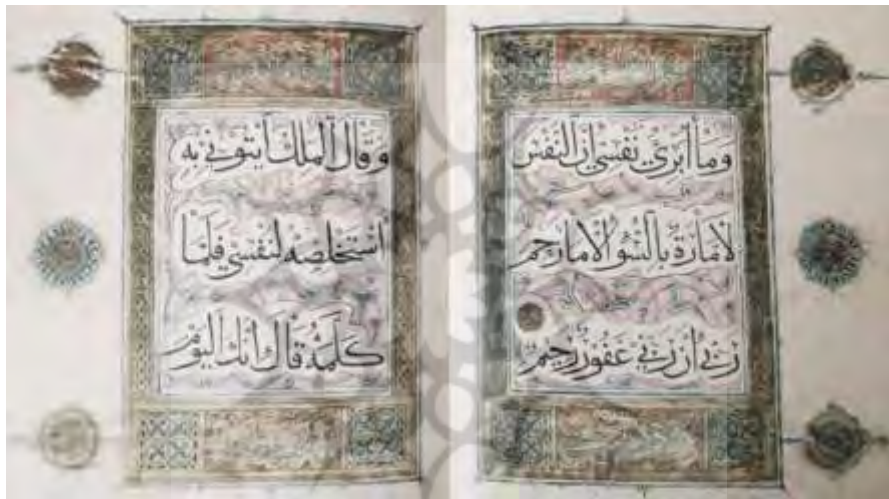 وَمَا أُبَرِّئُ نَفْسِي إِنَّ النَّفْسَ
لَأَمَّارَةٌ بِالسُّوءِ إِلَّا مَا رَحِمَ
رَبِّي إِنَّ رَبِّي غَفُورٌ رَحِيمٌ
وَقَالَ الْمَلِكُ ائْتُونِي بِهِ
أَسْتَخْلِصْهُ لِنَفْسِي فَلَمَّا
كَلَّمَهُ قَالَ إِنَّكَ الْيَوْمَ